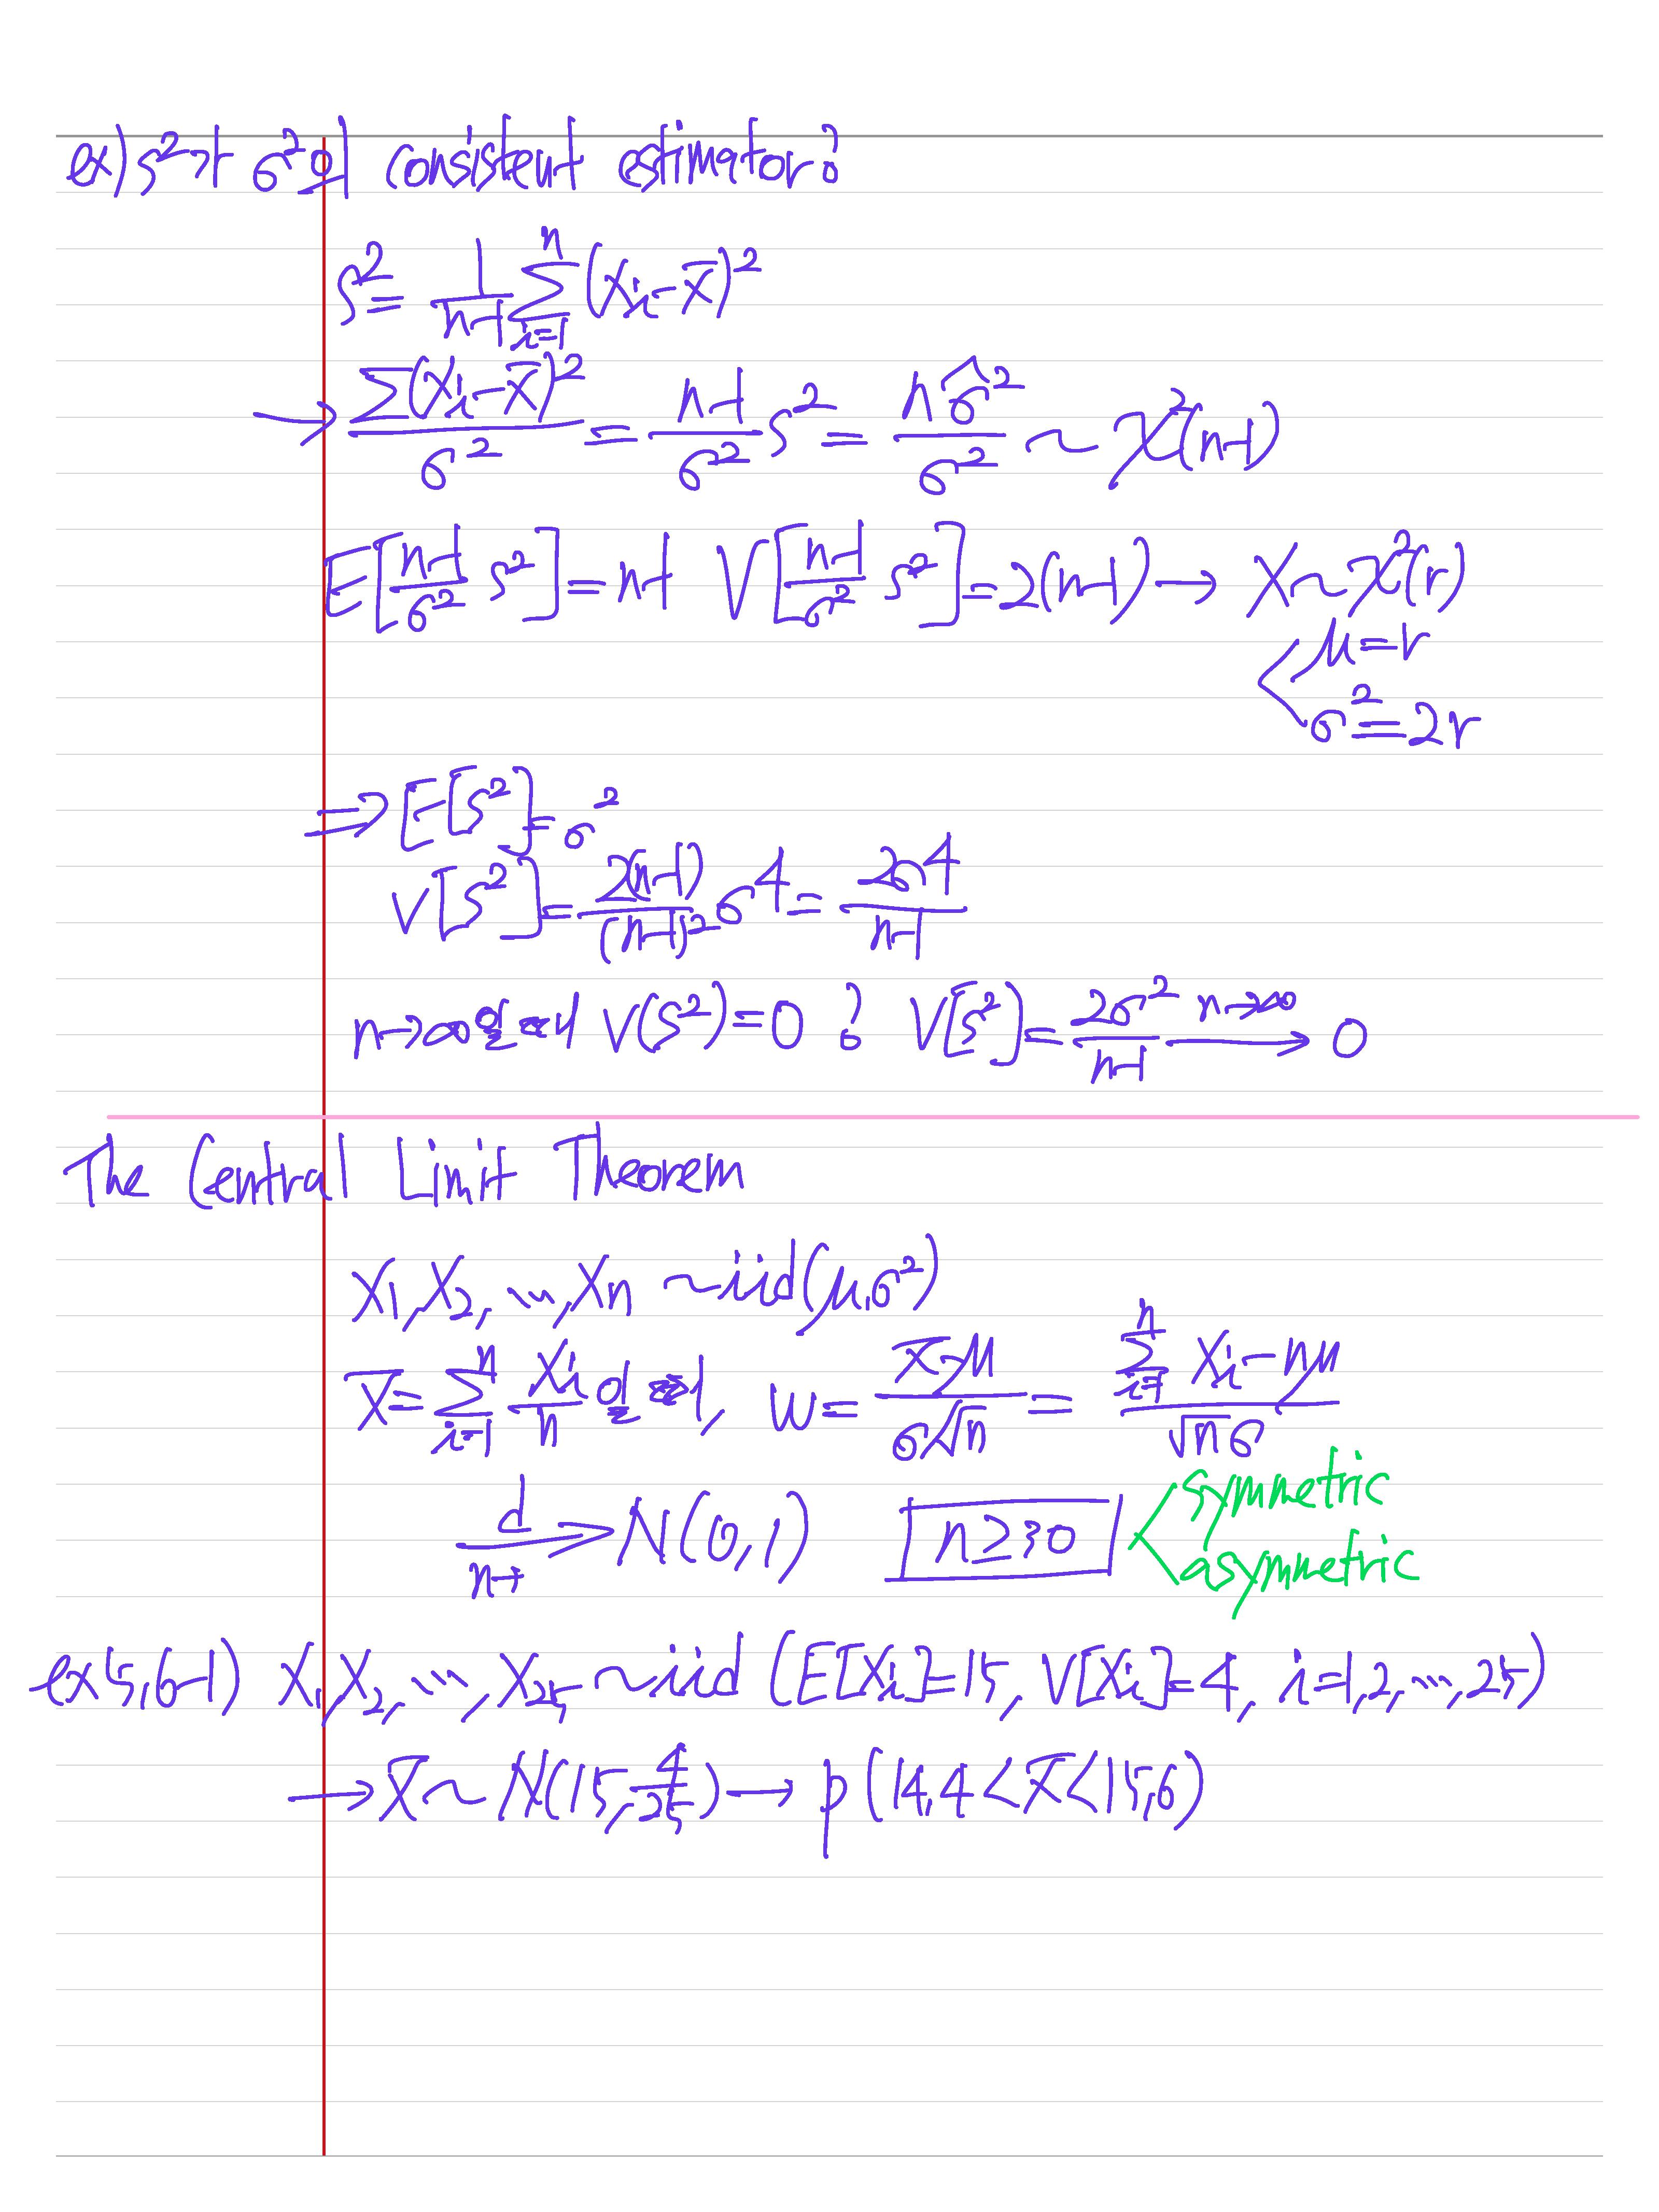 ex) s²가 σ²의 consistent estimator?
s² = 1/(n-1) Σ_{i=1}^{n} (Xi - X̄)²
→ Σ(Xi - X̄)²/σ² = (n-1)/σ² s² = nσ̂²/σ² ~ χ²(n-1)
E[(n-1)/σ² s²] = n-1 V[(n-1)/σ² s²] = 2(n-1) → X ~ χ²(r)
μ = r
σ² = 2r
⇒ E[s²] = σ²
V[s²] = 2(n-1)/(n-1)² σ⁴ = 2σ⁴/(n-1)
n→∞일 때 V(s²) = 0 ? V[s²] = 2σ²/(n-1) n→∞ → 0
The Central Limit Theorem
X₁, X₂, ..., Xn ~ iid(μ, σ²)
X̄ = Σ_{i=1}^{n} Xi/n 일 때, W = (X̄-μ)/(σ/√n) = (Σ_{i=1}^{n} Xi - nμ)/(√n σ)
d n→ ⇒ N(0,1) n≥30 symmetric
asymmetric
ex 5.6-1) X₁, X₂, ..., X₂₅ ~ iid (E[Xi]=15, V[Xi]=4, i=1,2,...,25)
→ X̄ ~ N(15, 4/25) → p(14.4 < X̄ < 15.6)